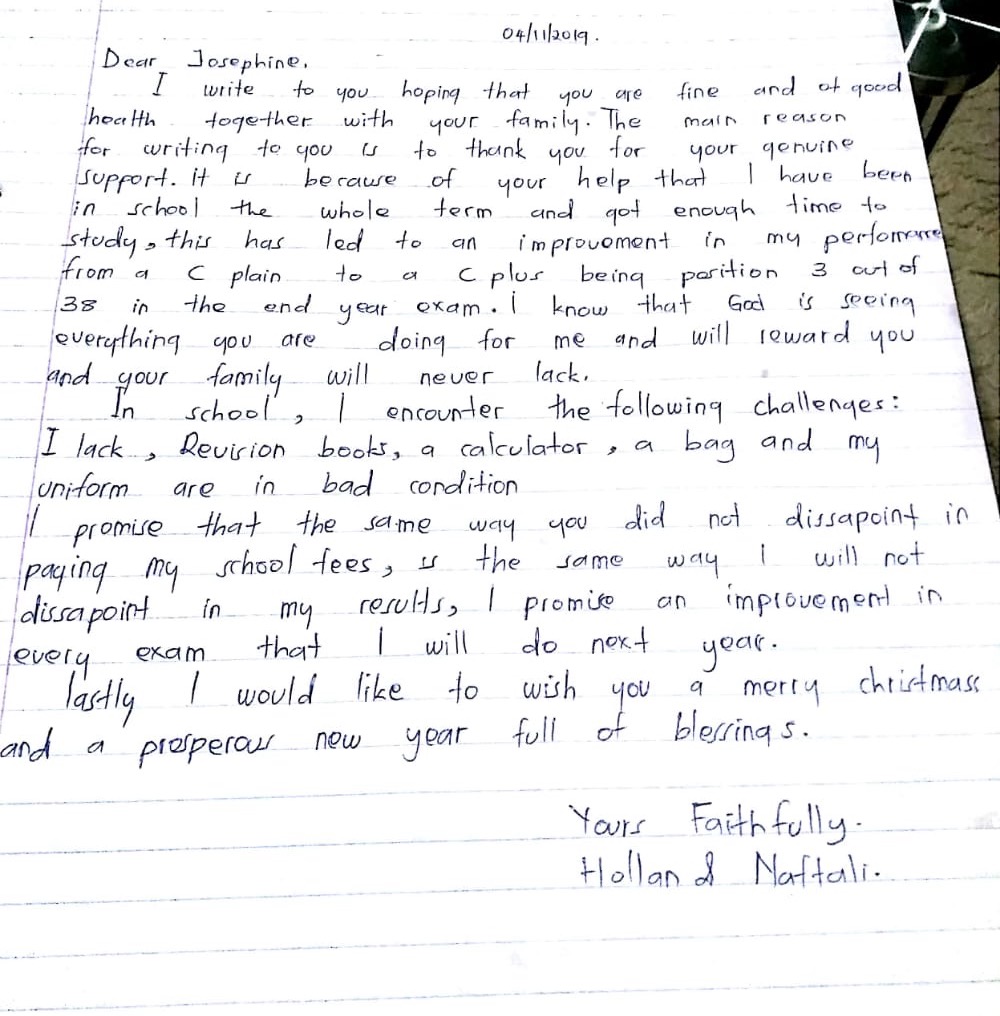 04/11/2019.
Dear Josephine,
I write to you hoping that you are fine and of good
health together with your family. The main reason
for writing to you is to thank you for your genuine
support. it is because of your help that I have been
in school the whole term and got enough time to
study, this has led to an improvement in my perfomance
from a C plain to a C plus being position 3 out of
38 in the end year exam. I know that God is seeing
everything you are doing for me and will reward you
and your family will never lack.
In school, I encounter the following challenges:
I lack, Revision books, a calculator, a bag and my
uniform are in bad condition
I promise that the same way you did not dissapoint in
paying my school fees, is the same way I will not
dissapoint in my results, I promise an improvement in
every exam that I will do next year.
lastly I would like to wish you a merry christmass
and a prosperous new year full of blessings.
Yours Faithfully.
Holland Naftali.